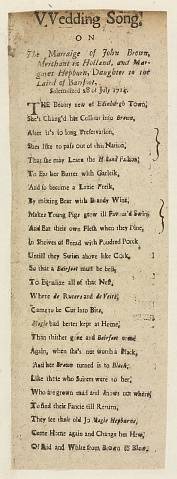 VVedding Song,
ON
The Marraige of John Brown,
Merchant in Holland, and Mar-
garet Hepburn, Daughter to the
Laird of Bairfoot,
Solemnized 28 of July 1714.
THE Beauty new of Edinburgh Town,
She's Chang'd her Collour into Brown,
After it's so long Preservation,
Shes like to pass out of this Nation,
That she may Learn the Holland Fashion;
To Eat her Butter with Garlick,
And so become a Little
By mixing Bear with Brandy Wine,
Makes Young Pigs grow ill Swine
And Eat their own Flesh when they Dine,
In Shrives of Bread with Powdred Pork
Untill they Swim above like Cork,
So that a Bairfoot must be best,
To Equalize all of that Nest,
Where de Ruters and de Veits,
Came to be Cut into Bits,
Magie had better kept at Home,
Than thither gone and Bairfoot come
Again, when she's not worth a Plack,
And her Brown turned is to Black;
Like these who Suiters were to her,
Who are grown mad and knows not where
To find their Fancie till Return,
They see their old Jo Magie Hepburne,
Come Home again and Change her Hew,
Of Red and White from Brown to Blew.